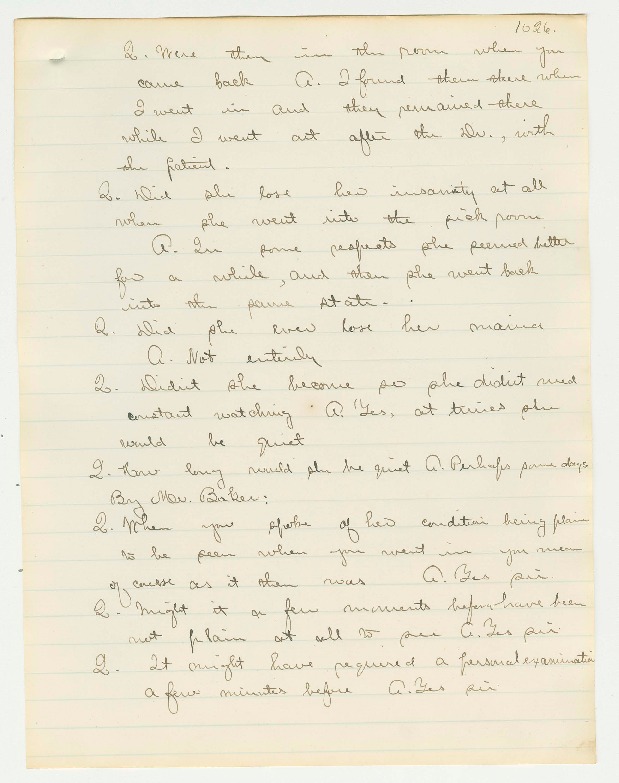 1026.
Q. Were they in the room when you
came back A. I found them there when
I went in and they remained there
while I went out after the Dr., with
the patient.
Q. Did she lose her insanity at all
when she went into the sick room
A. In some respects she seemed better
for a while, and then she went back
into the same state.
Q. Did she ever lose her mania
A. Not entirely
Q. Didn't she become so she didn't need
constant watching A. Yes, at times she
would be quiet
Q. How long would she be quiet A. Perhaps some days
By Mr. Baker:
Q. When you spoke of her condition being plain
to be seen when you went in you mean
of course as it then was A. Yes sir
Q. Might it a few moments before have been
not plain at all to see A. Yes sir
Q. It might have required a personal examination
a few minutes before A. Yes sir